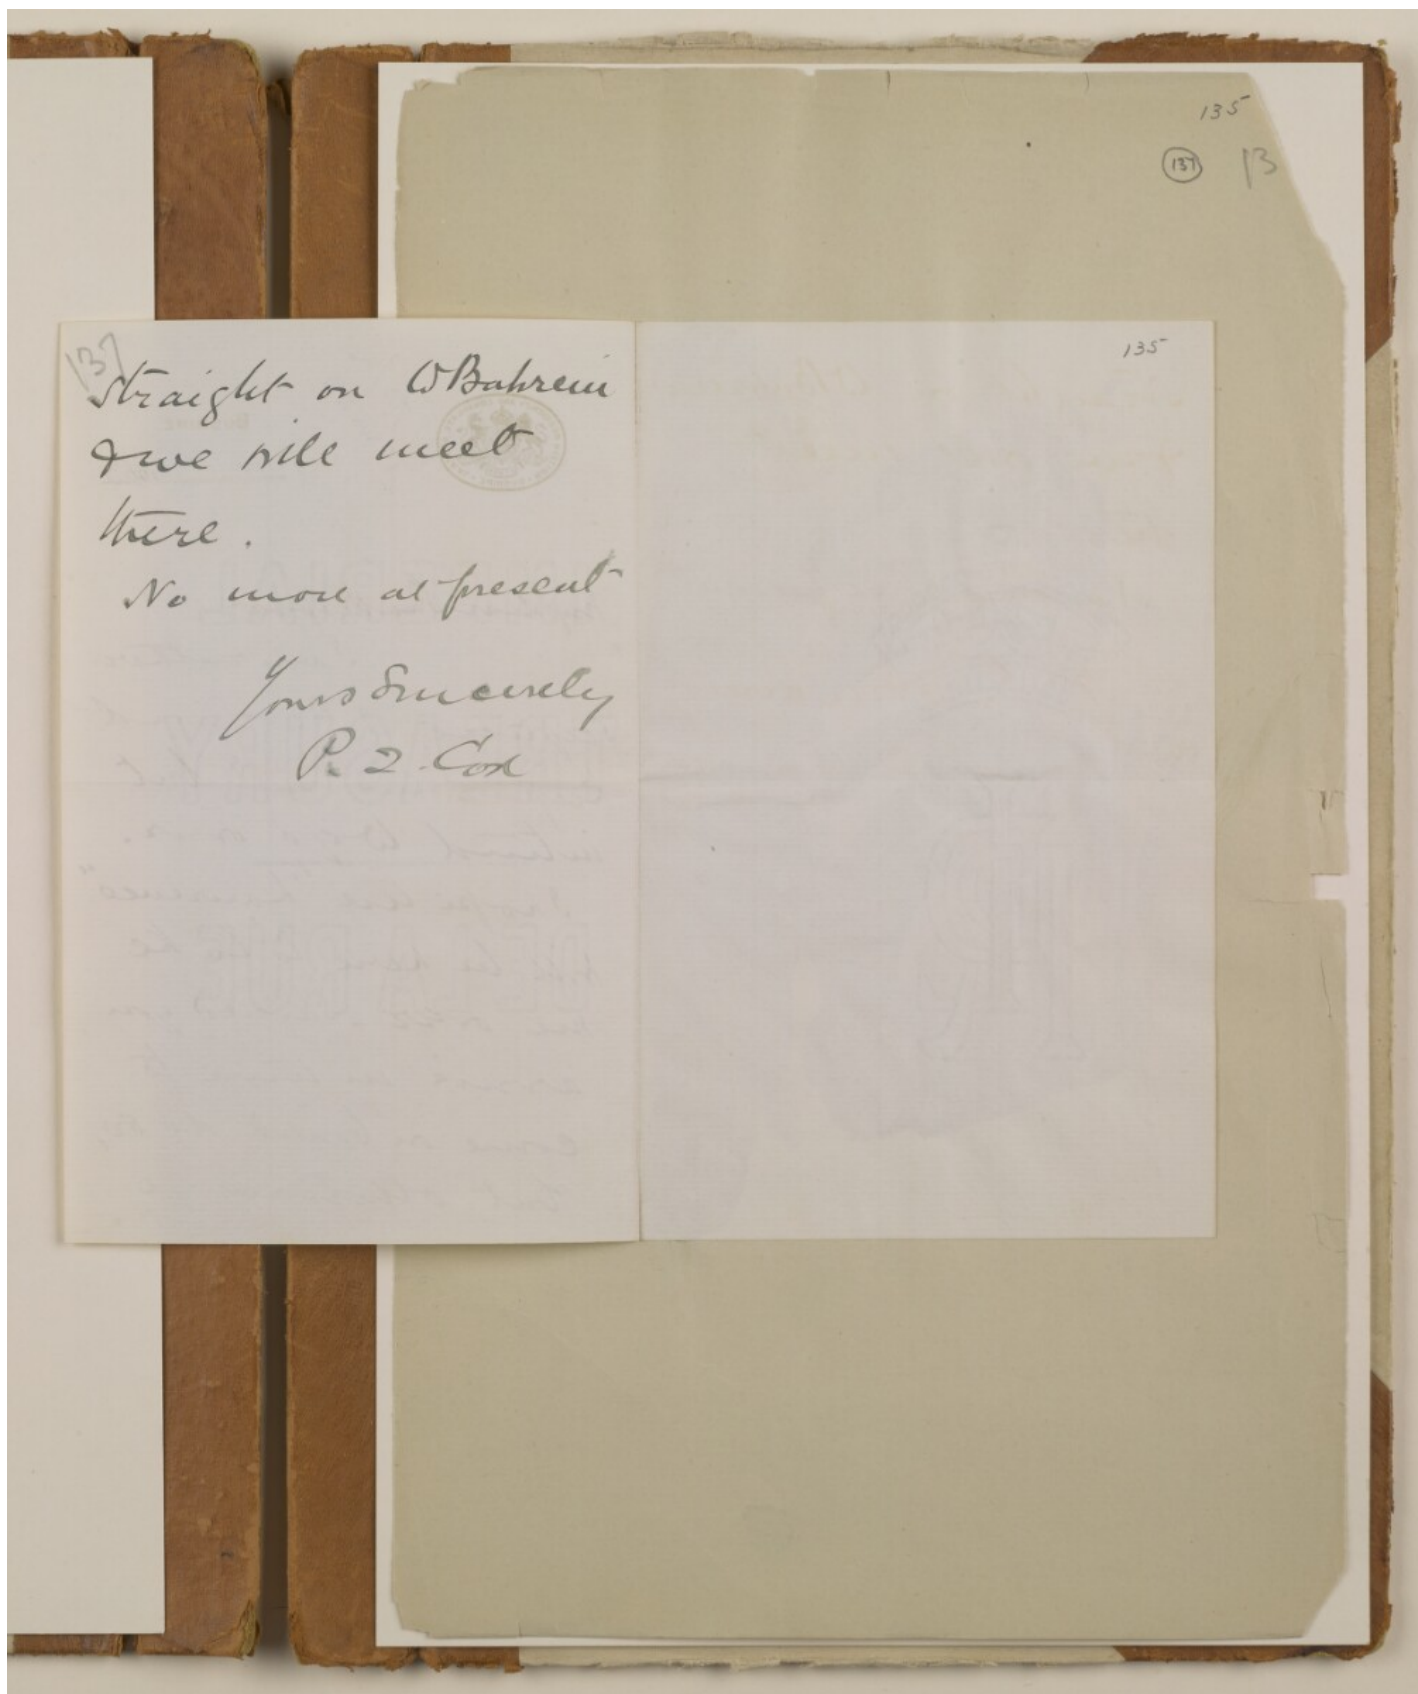 135
137
13
135
137
straight on to Bahrein
& we will meet
there.
No more at present
Yours Sincerely
P. Z. Cox